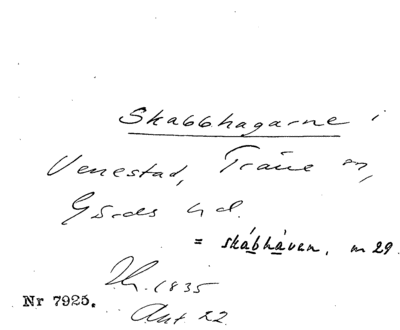 Skabbhagarne i
Venestad, Träne sn,
Gärds hd.
= skábhávan, m 29.
Nr 7925.
1835
Akt 22